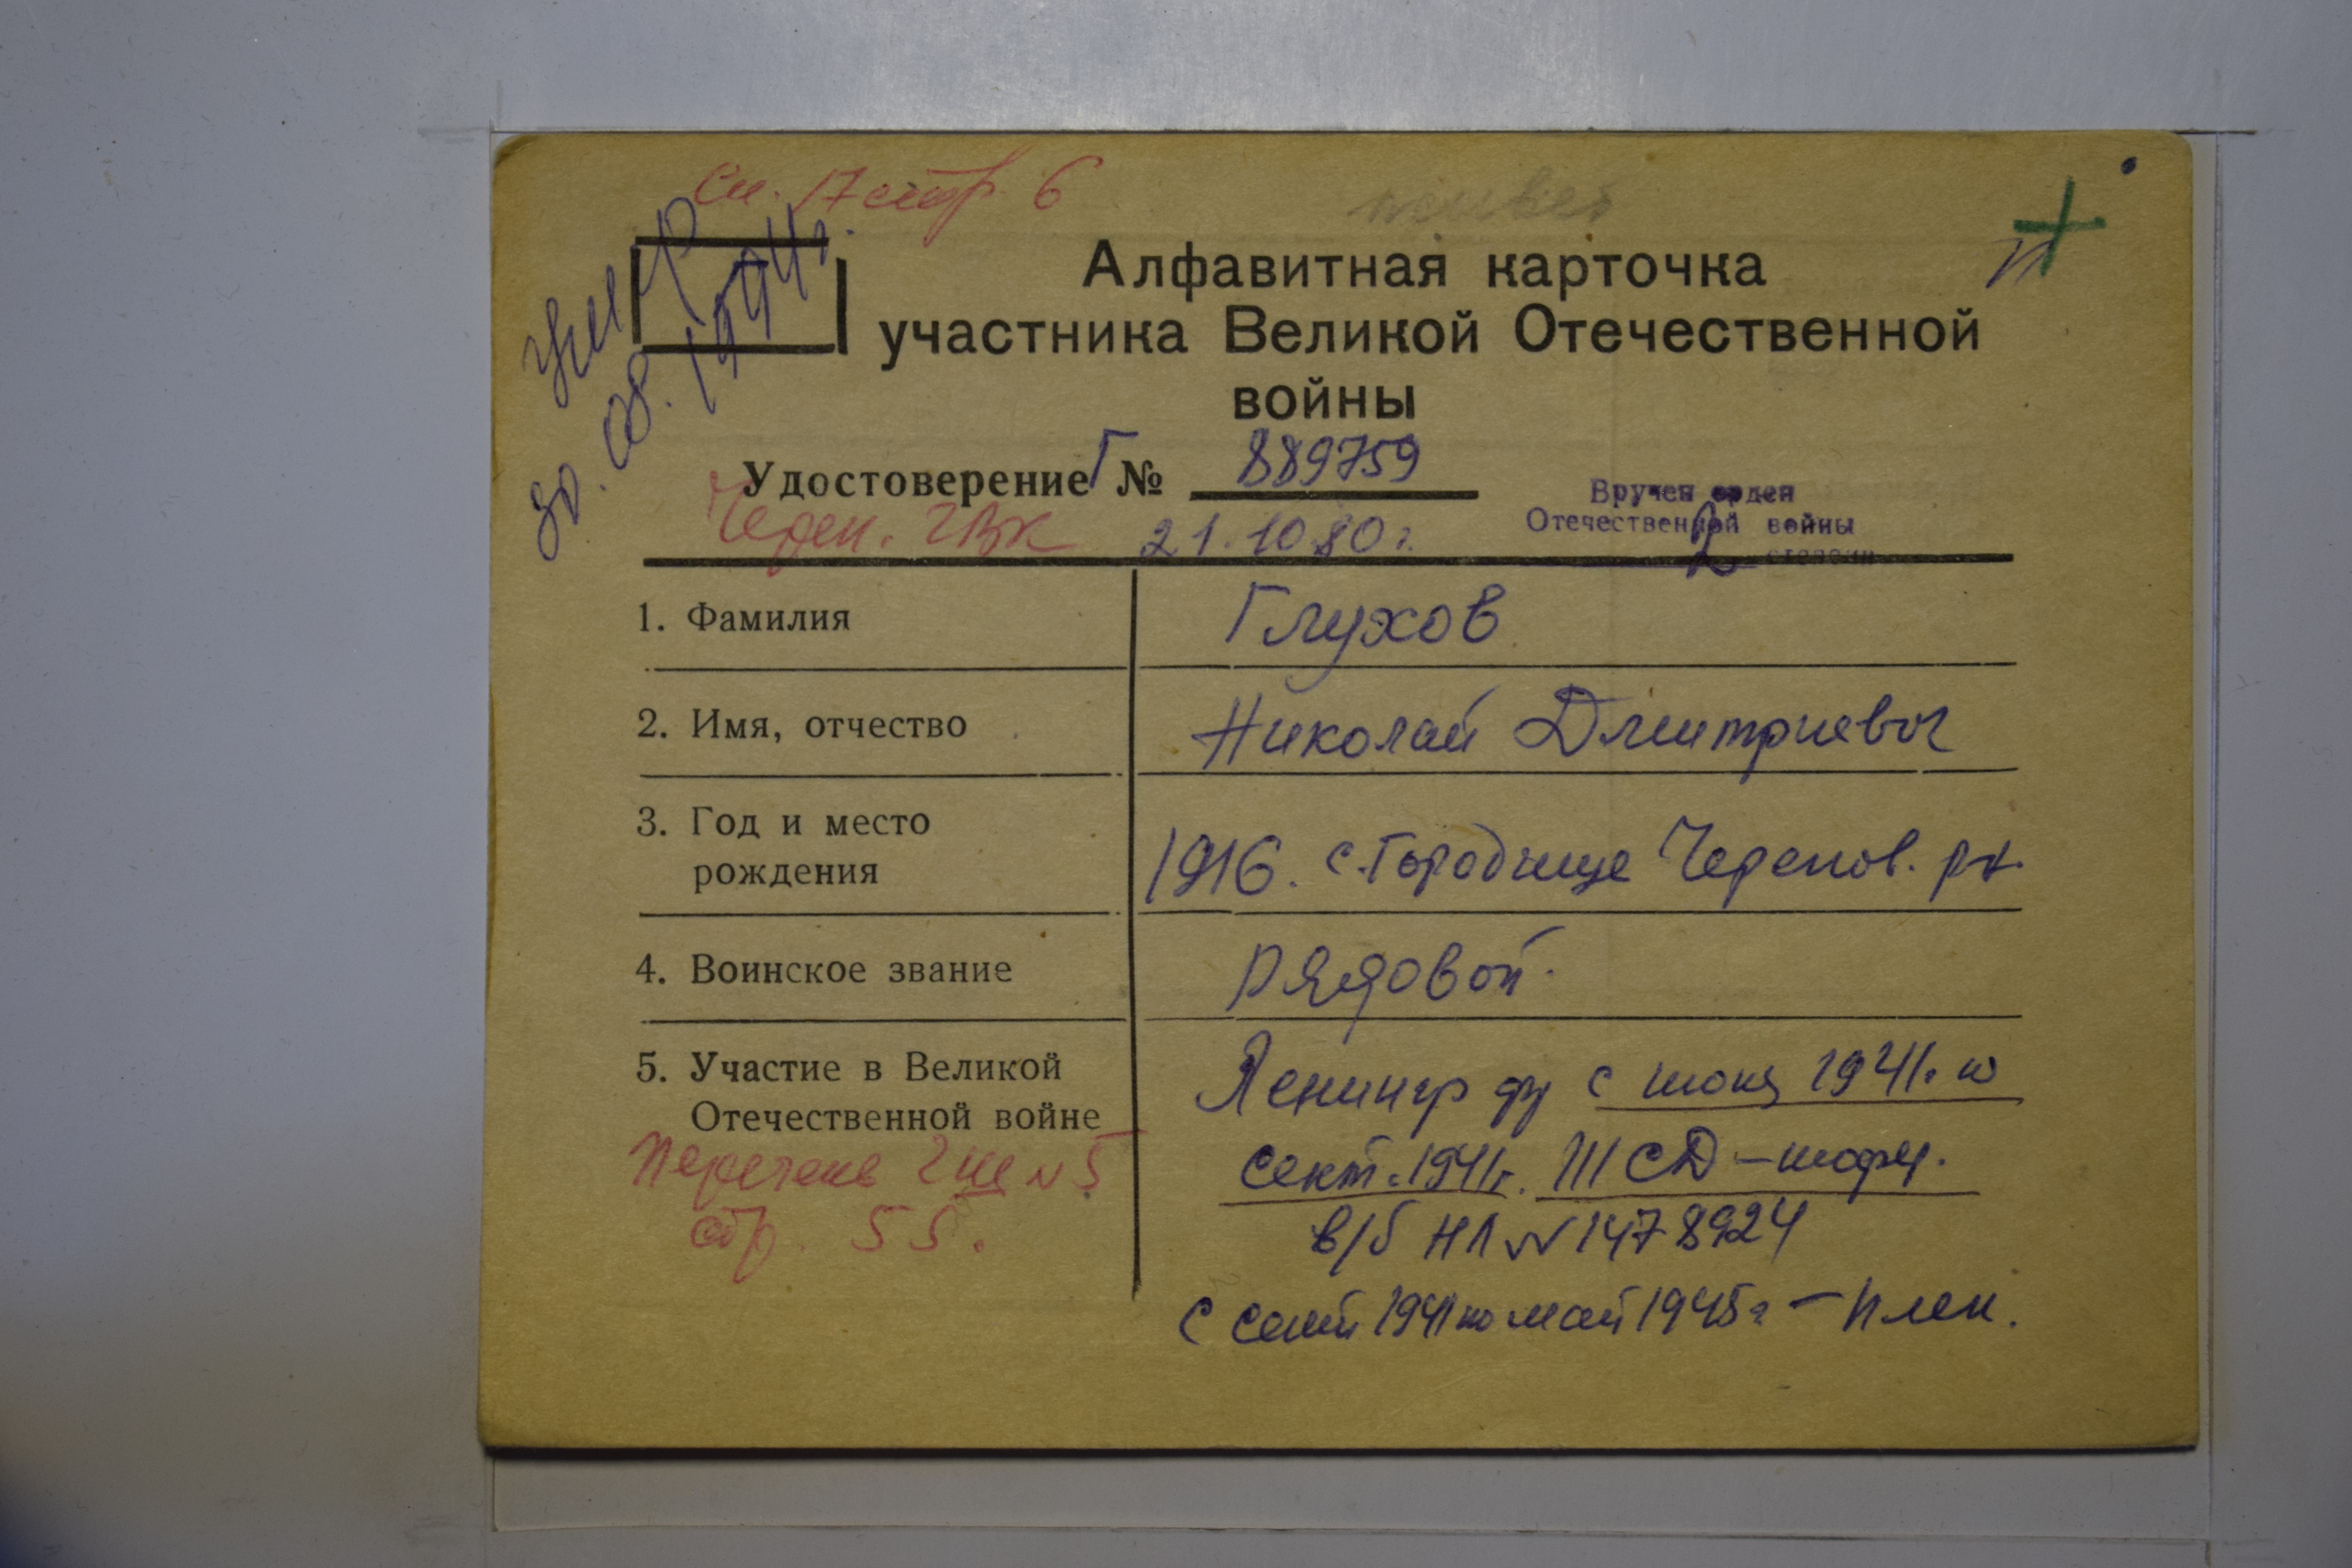 См. 17 стр. 6
умер
30.08.1994г.
Алфавитная карточка
участника Великой Отечественной
войны
Удостоверение Г № 889759
Череп. ГВК 21.10.80г.
Вручен орден
Отечественной войны
2 степени
1. Фамилия Глухов
2. Имя, отчество Николай Дмитриевич
3. Год и место
рождения 1916. с. Городище Черепов. р-н.
4. Воинское звание рядовой.
5. Участие в Великой
Отечественной войне
Ленингр фр с июня 1941г. по
сент. 1941г. 111 СД - шофер.
в/б НЛ N 1478924
с сент 1941 по май 1945г - плен.
Перечень ГШ N 5
стр. 55.